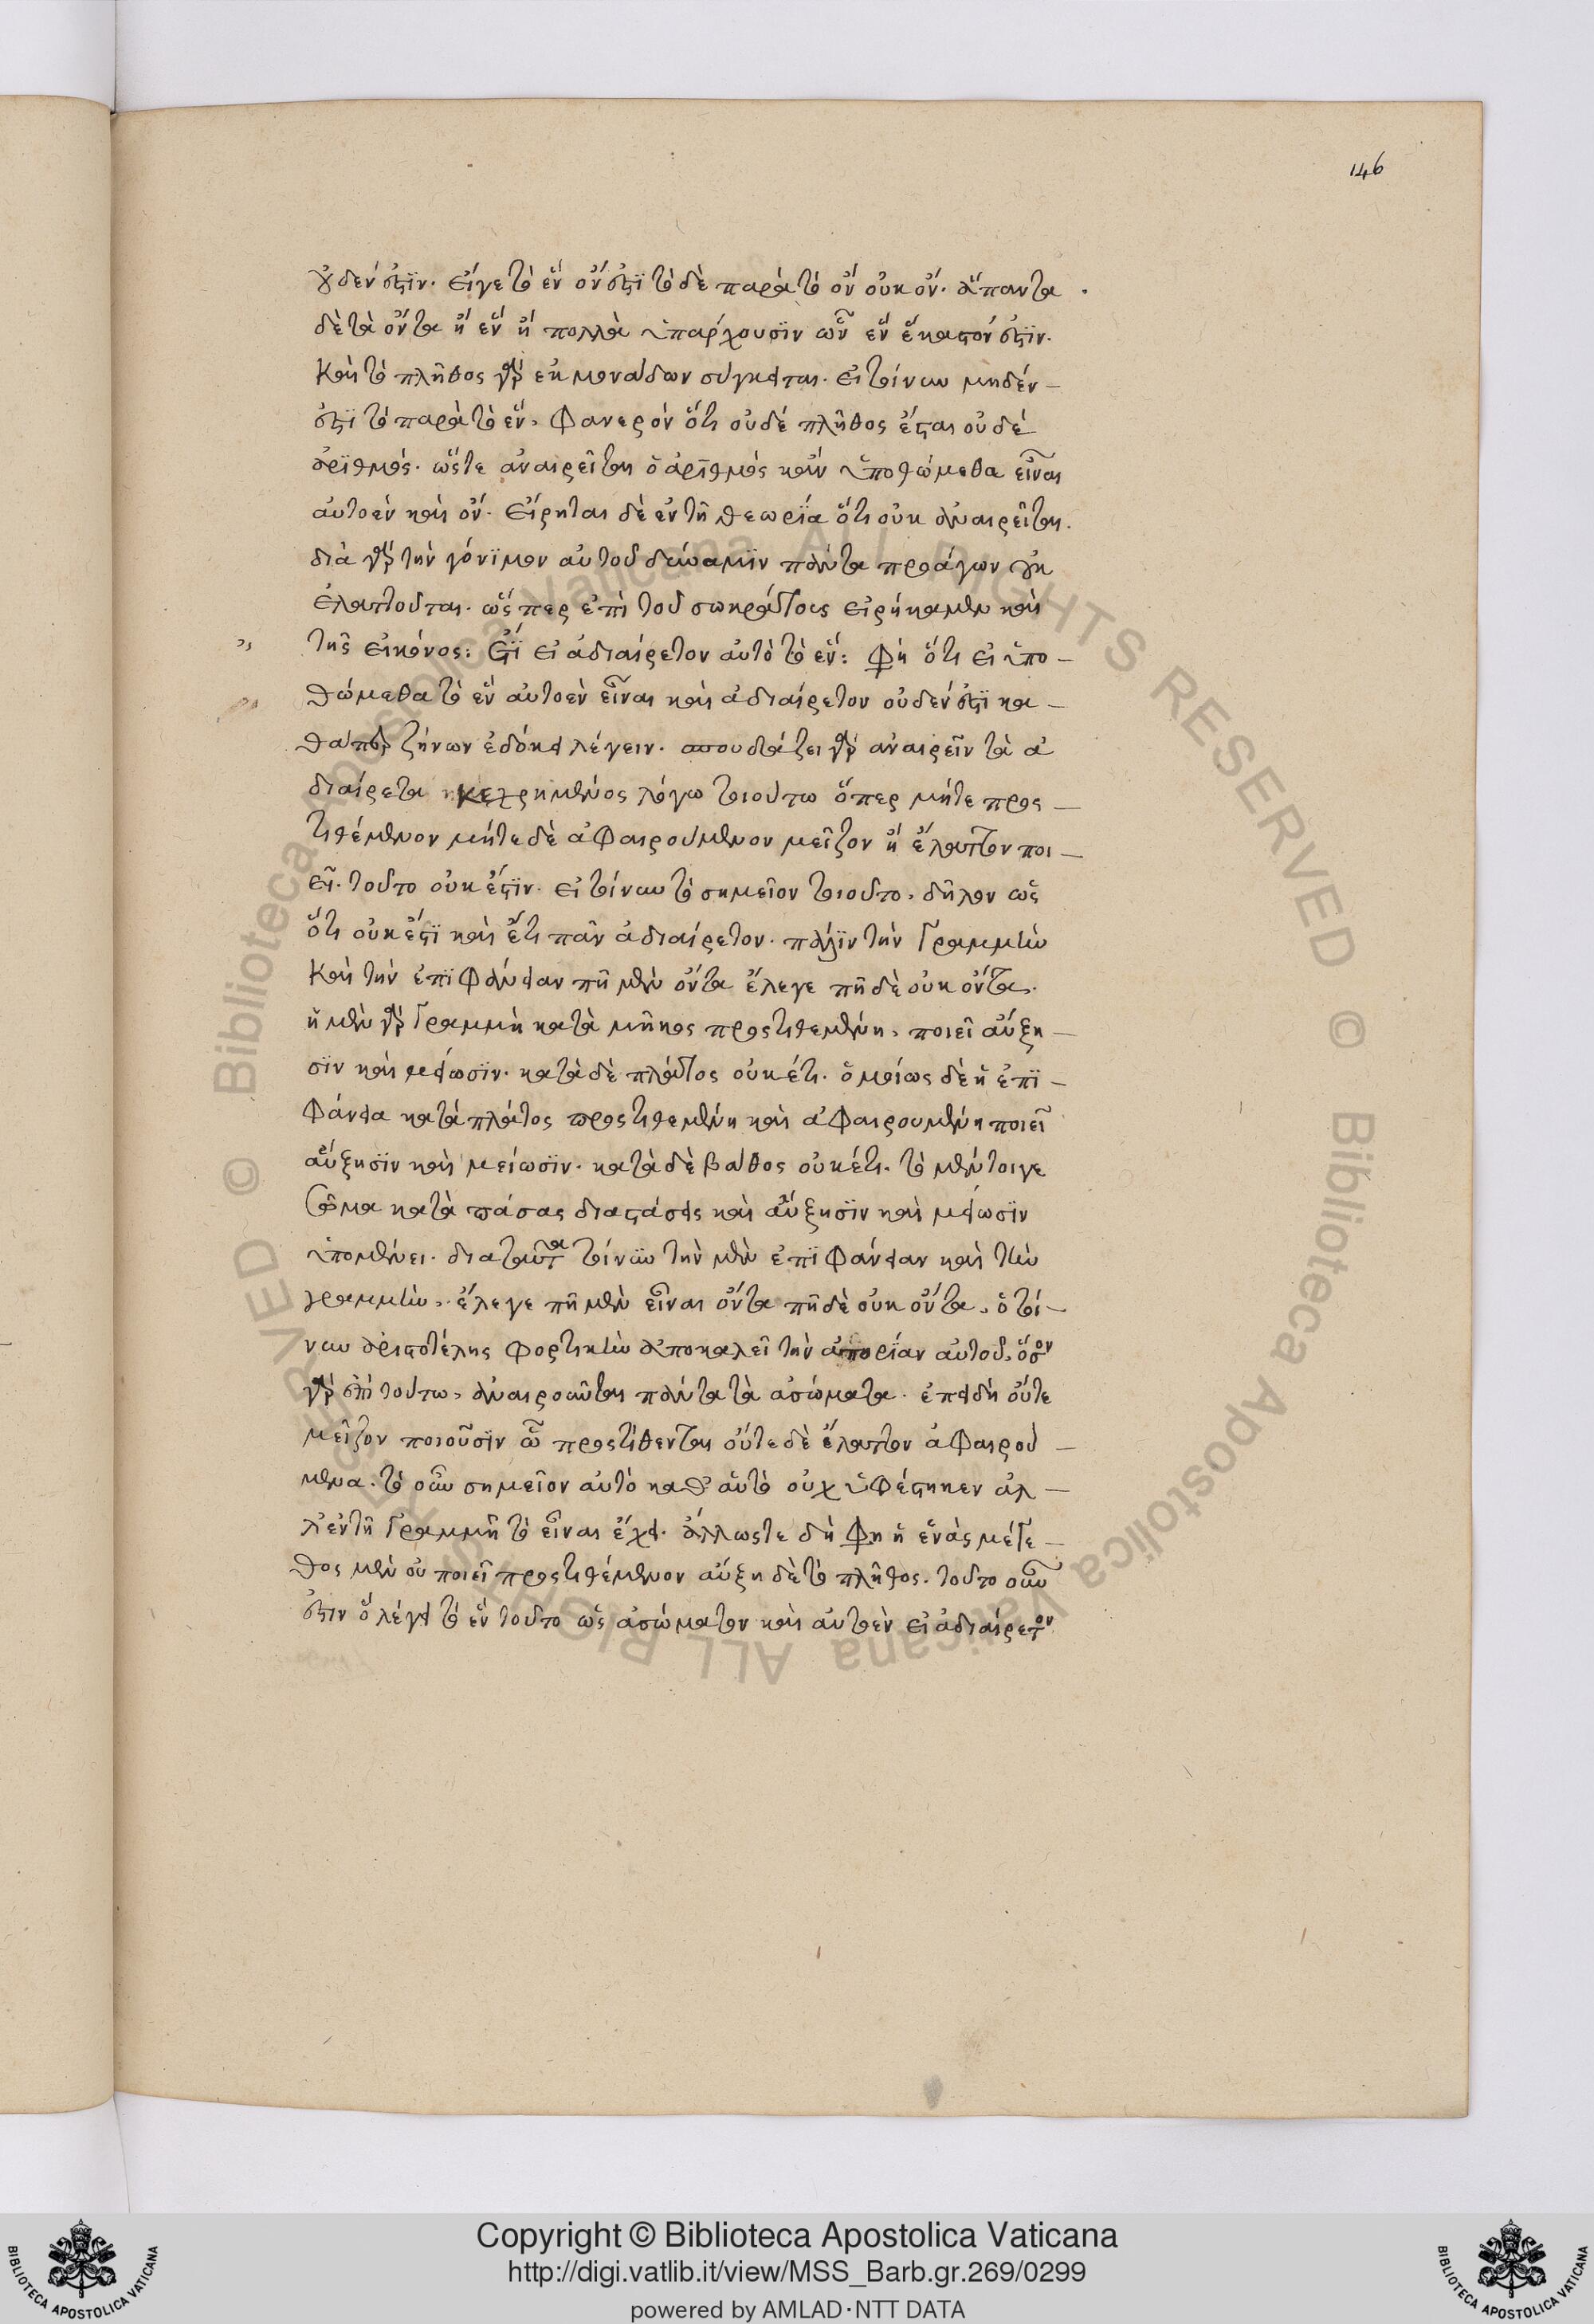 146
οὐδέν ἐστϊν. εἴγε τὸ ἓν ὄν ἐστϊ τὸ δὲ παρὰ τὸ ὂν οὐκ ὄν. ἅπαντα
δὲ τὰ ὄντα ἢ ἓν ἢ πολλὰ ὑπάρχουσϊν ὧν ἓν ἕκαστόν ἐστϊν.
Καὶ τὸ πλῆθος γὰρ ἐκ μονάδων σύγκειται. εἰ τοίνυν μηδέν –
ἐστϊ τὸ παρὰ τὸ ἕν, Φανερὸν ὅτι οὐδὲ πλῆθος ἔσται οὐδὲ
ἀρϊθμός. ὥστε ἀναιρεῖται ὁ ἀρϊθμός κἂν ὑποθώμεθα εἶναι
αὐτοὲν καὶ ὄν. Εἴρηται δὲ ἐν τῆ θεωρϊα ὅτι οὐκ ἀναιρεῖται.
διὰ γὰρ τὴν γόνϊμον αὐτοῦ δύναμϊν πάντα προάγων οὐκ
ἐλαττοῦται. ὥσπερ ἐπὶ τοῦ σωκράτους εἰρήκαμεν καὶ
τῆς εἰκόνος: Ἔτϊ εἰ ἀδιαίρετον αὐτὸ τὸ ἕν: Φη ὅτι εἰ ὑπο –
θώμεθα τὸ ἓν αὐτοὲν εἶναι καὶ ἀδιαίρετον οὐδέν ἐστϊ κα –
θάπερ ζήνων ἐδόκει λέγειν. σπουδάζει γὰρ ἀναιρεῖν τὰ ἀ
διαίρετα κεχρημένος λόγω τοιούτω ὅπερ μήτε προς –
τιθέμενον μήτε δὲ ἀΦαιρούμενον μεῖζον ἢ ἔλαττον ποι –
εῖ. τοῦτο οὐκ ἔστϊν. εἰ τοίνυν τὸ σημεῖον τοιοῦτο, δῆλον ὡς
ὅτι οὐκ ἔστϊ καὶ ἔτι πᾶν ἀδιαίρετον. πάλϊν τὴν Γραμμὴν
Καὶ τὴν ἐπϊΦάνειαν πῆ μὲν ὄντα ἔλεγε πῆ δὲ οὐκ ὄντα.
ἡ μὲν γὰρ Γραμμὴ κατὰ μῆκος προςτιθεμένη, ποιεῖ αὔξη –
σϊν καὶ μείωσϊν. κατὰ δὲ πλάτος οὐκέτι. ὁμοίως δὲ ἡ ἐπϊ –
Φάνεια κατὰ πλάτος προςτιθεμένη καὶ ἀΦαιρουμένη ποιεῖ
αὔξησϊν καὶ μείωσϊν. κατὰ δὲ βάθος οὐκέτι. τὸ μέντοιγε
Σῶμα κατὰ πάσας διαστάσεις καὶ αὔξησϊν καὶ μείωσϊν
ὑπομένει. διὰ ταῦτα τοίνυν τὴν μὲν ἐπϊΦάνειαν καὶ τὴν
γραμμὴν, ἔλεγε πῆ μὲν εἶναι ὄντα πῆ δὲ οὐκ ὄντα. ὁ τοί –
νυν ἀριστοτέλης Φορτικὴν ἀποκαλεῖ τὴν ἀπορϊαν αὐτοῦ, ὅσον
γὰρ ἐπὶ τούτω, ἀναιροῦνται πάντα τὰ ἀσώματα. ἐπειδὴ οὔτε
μεῖζον ποιοῦσϊν ὧ προςτίθενται οὔτε δὲ ἔλαττον ἀΦαιρού –
μενα. τὸ οὖν σημεῖον αὐτὸ καθ' αὑτὸ οὐχ ὑΦέστηκεν ἀλ –
λ' ἐν τῆ Γραμμῆ τὸ εἶναι ἔχει. ἄλλωςτε δὴ Φη ἡ ἑνὰς μέγε –
θος μὲν οὐ ποιεῖ προςτιθέμενον αὔξη δὲ τὸ πλῆθος. τοῦτο οὖν
ἐστιν ὃ λέγει τὸ ἓν τοῦτο ὡς ἀσώματον καὶ αὐτοὲν εἰ ἀδιαίρετον
Copyright © Biblioteca Apostolica Vaticana
http://digi.vatlib.it/view/MSS_Barb.gr.269/0299
powered by AMLAD·NTT DATA
BIBLIOTECA APOSTOLICA VATICANA
BIBLIOTECA APOSTOLICA VATICANA
© Biblioteca Apostolica Vaticana ALL RIGHTS RESERVED
© Biblioteca Apostolica Vaticana ALL RIGHTS RESERVED